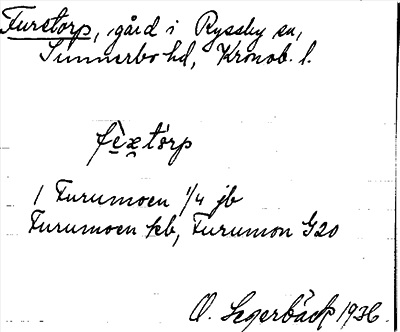 Furetorp, gård i Ryssby sn,
Sunnerbo hd, Kronob. l.
1 Furumoen 1/4 jb
Furumoen kb, Furumon G20
O. Segerbäck 1936.